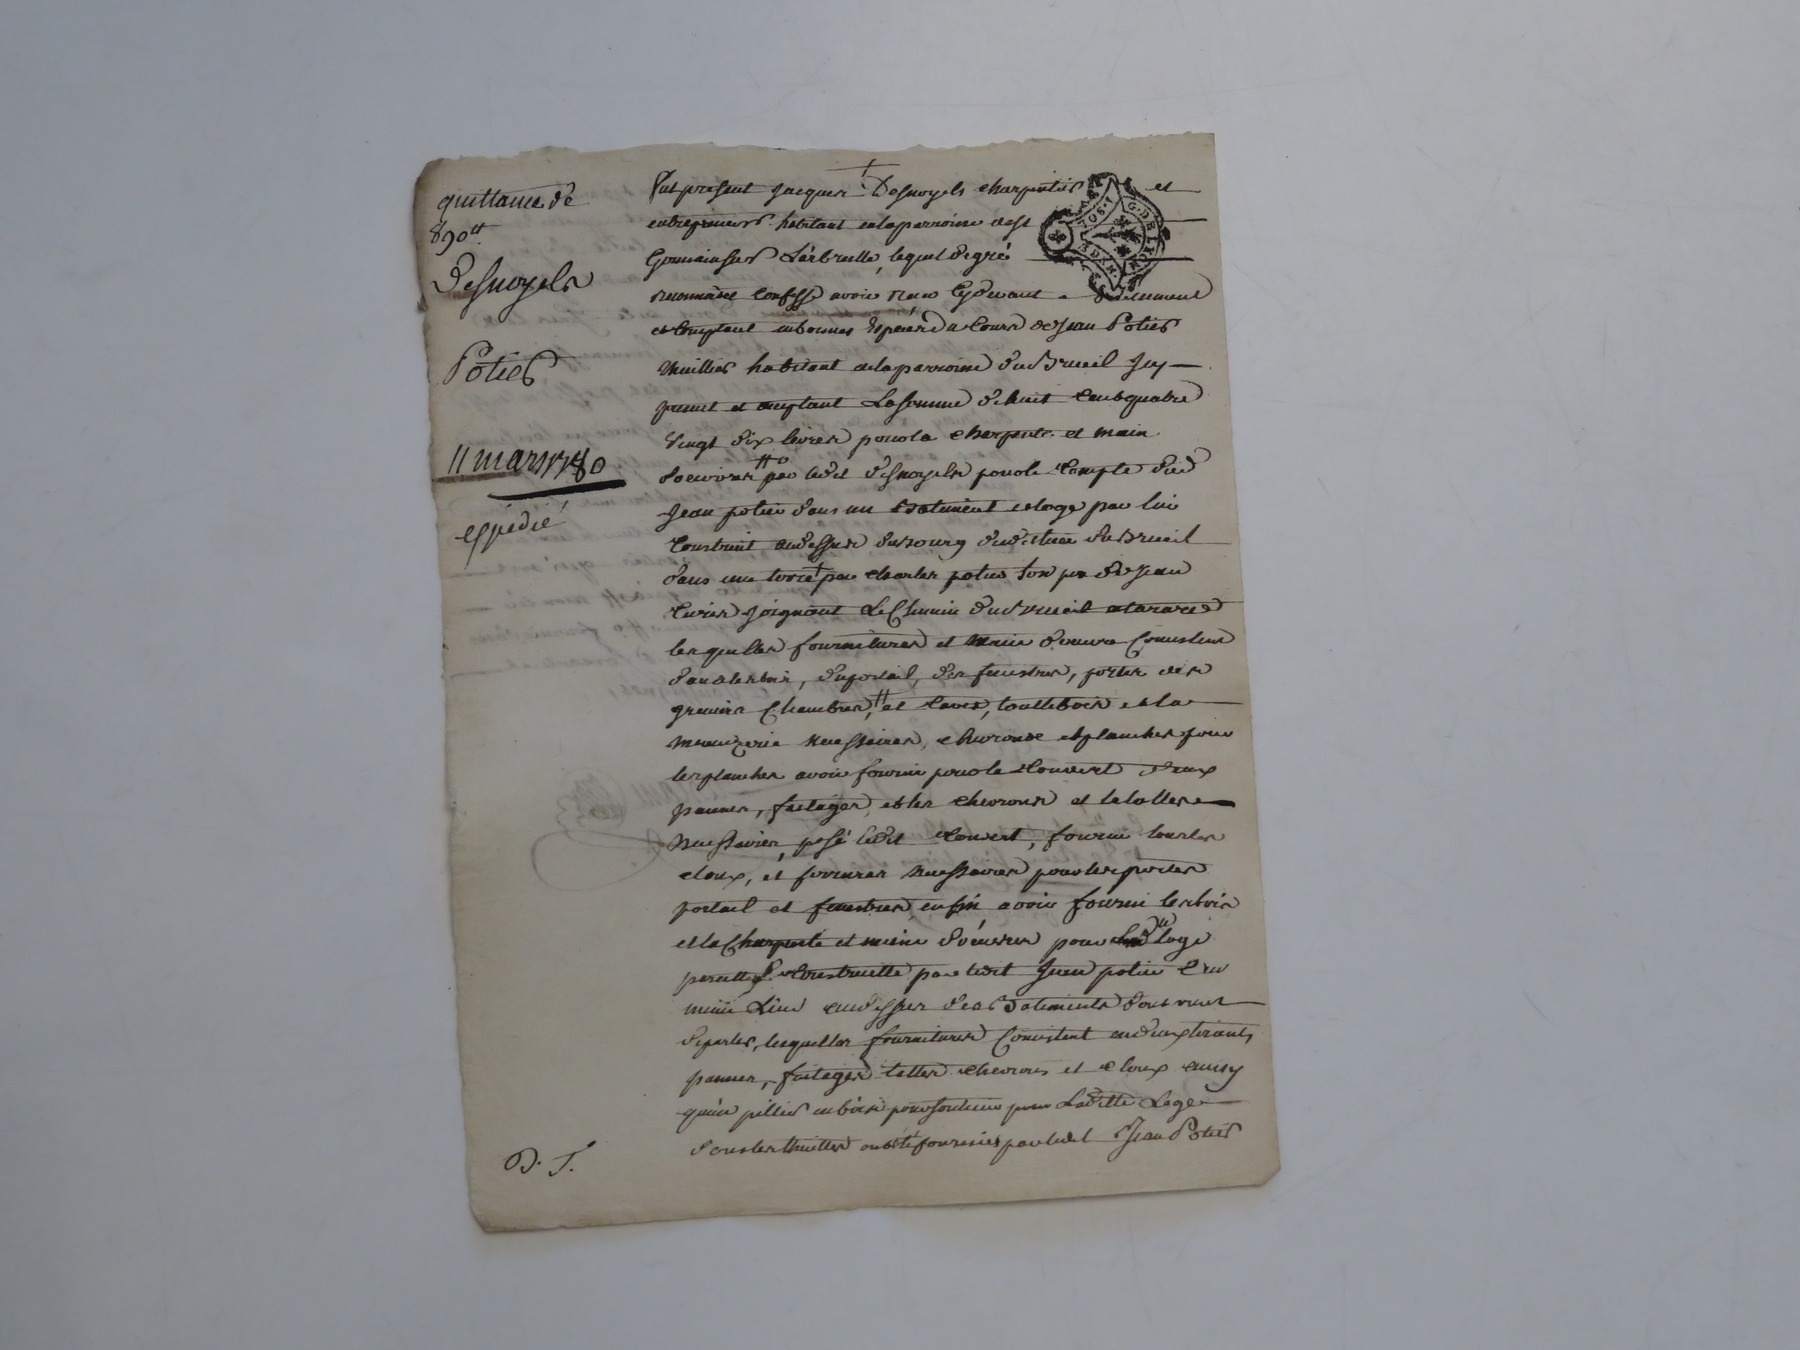 quittance de
890 tt
Desnoyels
Potier
11 mars 1780
expédié
fut present Jacques Desnoyels charpentier et
entrepreneur habitant en la parroisse de st
Germain sur L'arbrelle, lequel de gré
reconnaise confesse avoir reçu cydevant
et comptant en bonnes espéces du cours de Jean Potier
thuillier habitant en la parroisse du Breuil icy
present et acceptant La somme de huit cent quatre
vingt dix livres pour la charpente et main
d'oeuvres par ledit Desnoyels pour le compte dud
Jean potier dans un Batiment et loge par lui
construit audessus du Bourg dudit lieu du Breuil
dans une terre par charles potier son per de Jean
joignant Le Chemin du Breuil a tarare
lesquelles fournitures et main d'oeuvre Consistent
dans les bois, du portail, des fenestres, portes des
greniers Chambres, et caves, tout le bois et la
menuzerie necessaires, et planches pour
les planches avoir fourni pour le couvert deux
pannes, faitages, et les chevrons et la latte
necessaires, posé ledit couvert, fourni tous les
cloux, et ferrures necessaires pour les portes
portail et fenestres, enfin avoir fourni les bois
et la Charpente et main d'oeuvres pour loge
construitte par ledit Jean potier au
meme Lieu audessus des Batiments dont vient
d'parler, lesquelles fournitures Consistent en deux tirants
pannes, faitages lattes chevrons et cloux ainsy
qu'un pillier en bois pour soutenir pour Laditte Loge
dont les thuilles ont été fournies par ledit Jean Potier
D. J.